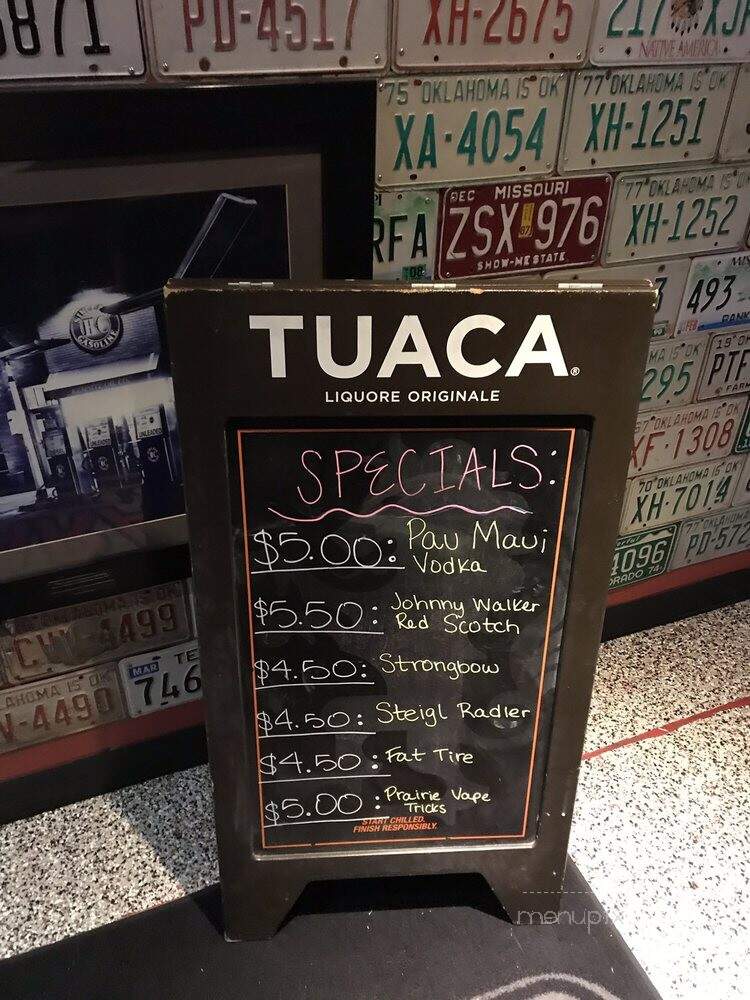 PD-4517
XH-2675
217
NATIVE AMERICA
'75 OKLAHOMA IS OK
XA·4054
77 OKLAHOMA IS OK
XH-1251
RFA
DEC MISSOURI
ZSX 976
SHOW-ME STATE
77 OKLAHOMA IS OK
XH-1252
493
GASOLINE
TUACA®
LIQUORE ORIGINALE
295
PTF
XF·1308
OKLAHOMA IS OK
XH·7014
4096
PD-572
SPECIALS:
$5.00: Pau Maui
Vodka
$5.50: Johnny Walker
Red Scotch
$4.50: Strongbow
$4.50: Steigl Radler
$4.50: Fat Tire
$5.00: Prairie Vape
Tricks
START CHILLED.
FINISH RESPONSIBLY.
4499
MAR
746
-4490